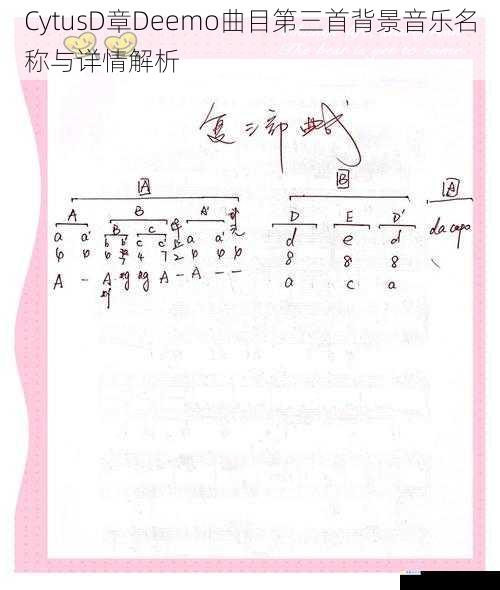 CytusD章Deemo曲目第三首背景音乐名
称与详情解析
复三部曲式
A B A
A B A' D E D'
B C da capo
a a' b b' c c' a a' d e d
6 6 6 4 7 2 6 6 6 8 8 8
A - A eg eg A - A - - a c a